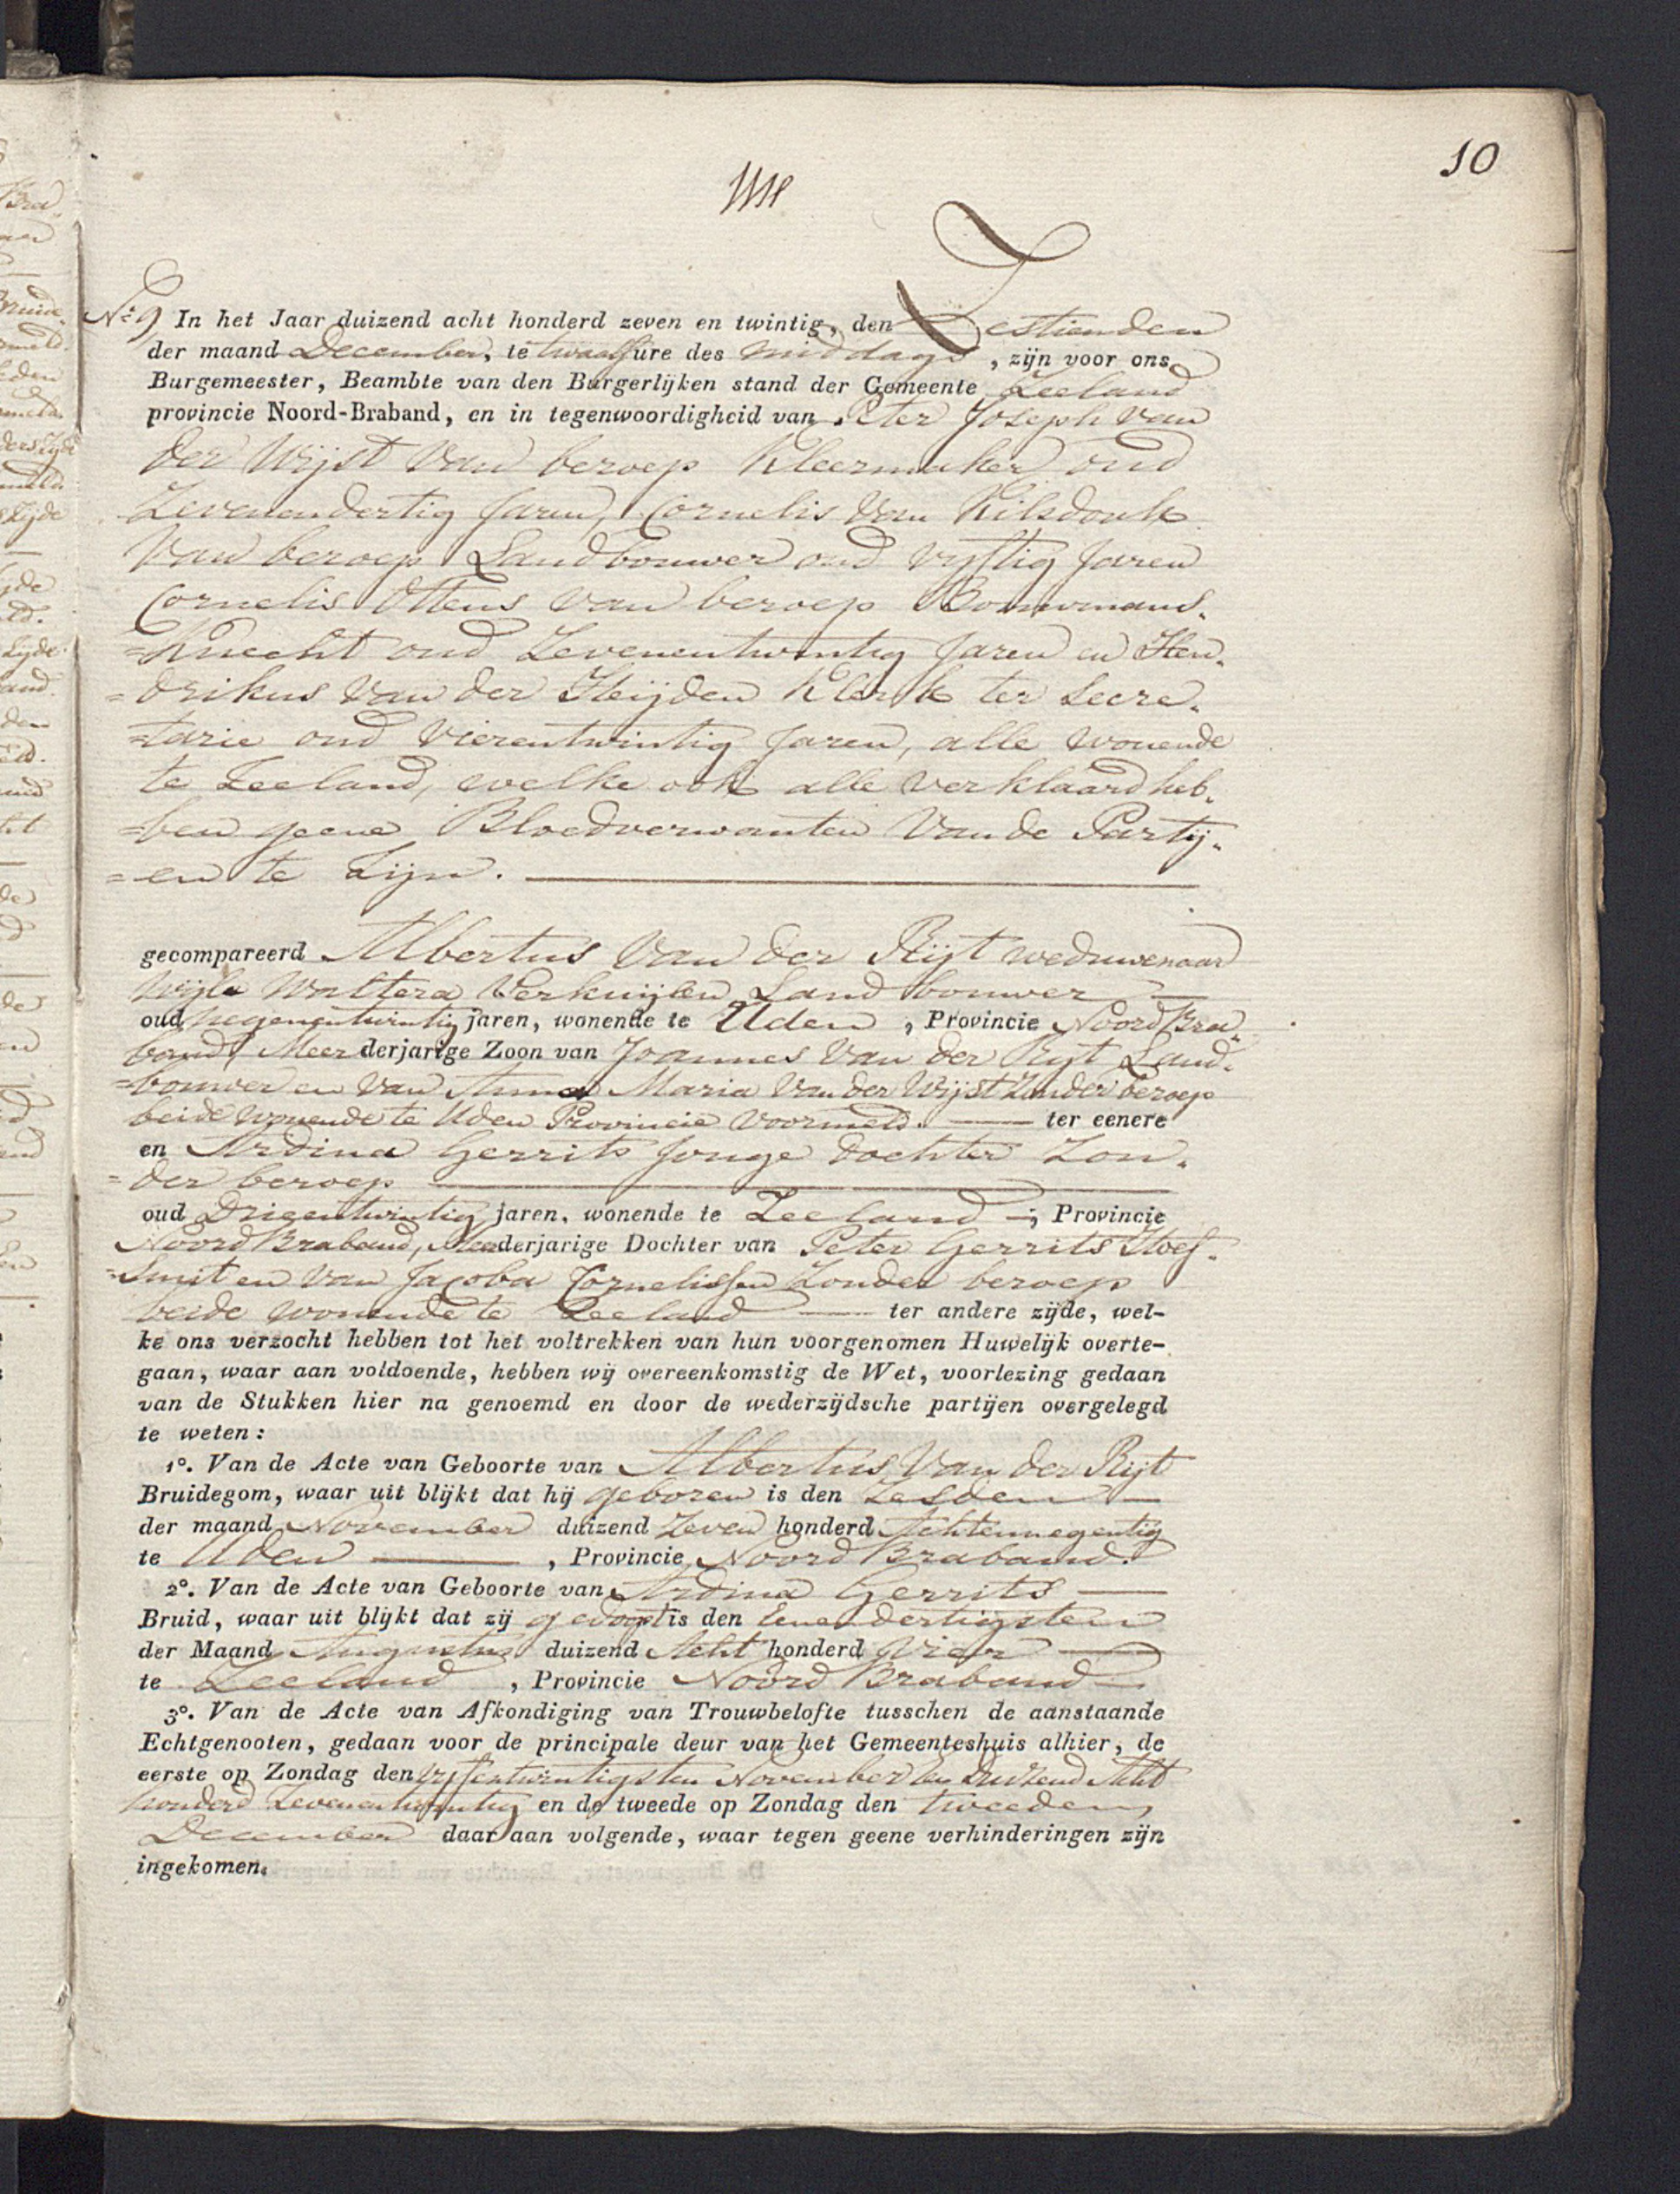 10
N:o 9 In het Jaar duizend acht honderd zeven en twintig, den Zestienden
der maand December, te twaalf ure des middags, zijn voor ons
Burgemeester, Beambte van den Burgerlijken stand der Gemeente Zeeland
provincie Noord-Braband, en in tegenwoordigheid van Peter Joseph van
der Wijst van beroep Kleermaker oud
Zevenendertig Jaren, Cornelis van Kilsdonk
van beroep Landbouwer oud vyftig Jaren
Cornelis Ottens van beroep Bouwmans„
=Knecht oud Zevenentwintig Jaren en Hen„
=drikus van der Heijden Klerk ter Secre„
=tarie oud Vierentwintig Jaren, alle wonende
te Zeeland, welke ook alle verklaard heb„
=ben geene Bloedverwanten van de Partij„
=en te Zijn.
gecompareerd Albertus van der Rijt weduwenaar
wijle Woltera Verkuijlen Landbouwer —
oud negenentwintig jaren, wonende te Uden, Provincie Noord Bra„
band, Meerderjarige Zoon van Joannes van der Rijt Land„
=bouwer en van Anna Maria van der Wijst Zonder beroep
beide wonende te Uden Provincie voormeld. — ter eenere
en Ardina Gerrits Jonge dochter Zon„
=der beroep —
oud Drieentwintig jaren, wonende te Zeeland —, Provincie
Noord Braband, Meerderjarige Dochter van Peter Gerrits Hoef„
=smit en van Jacoba Cornelissen Zonder beroep
beide wonende te Zeeland — ter andere zijde, wel-
ke ons verzocht hebben tot het voltrekken van hun voorgenomen Huwelijk overte-
gaan, waar aan voldoende, hebben wij overeenkomstig de Wet, voorlezing gedaan
van de Stukken hier na genoemd en door de wederzijdsche partijen overgelegd
te weten:
1°. Van de Acte van Geboorte van Albertus van der Rijt
Bruidegom, waar uit blijkt dat hij geboren is den Zesden —
der maand November duizend Zeven honderd Achtennegentig
te Uden —, Provincie Noord Braband.
2°. Van de Acte van Geboorte van Ardina Gerrits —
Bruid, waar uit blijkt dat zij gedoopt is den Eenendertigsten
der Maand Augustus duizend Acht honderd Vier —
te Zeeland, Provincie Noord Braband —
3°. Van de Acte van Afkondiging van Trouwbelofte tusschen de aanstaande
Echtgenooten, gedaan voor de principale deur van het Gemeenteshuis alhier, de
eerste op Zondag den vyfentwintigsten November een duizend Acht
honderd Zevenentwintig en de tweede op Zondag den tweeden
December daar aan volgende, waar tegen geene verhinderingen zijn
ingekomen.